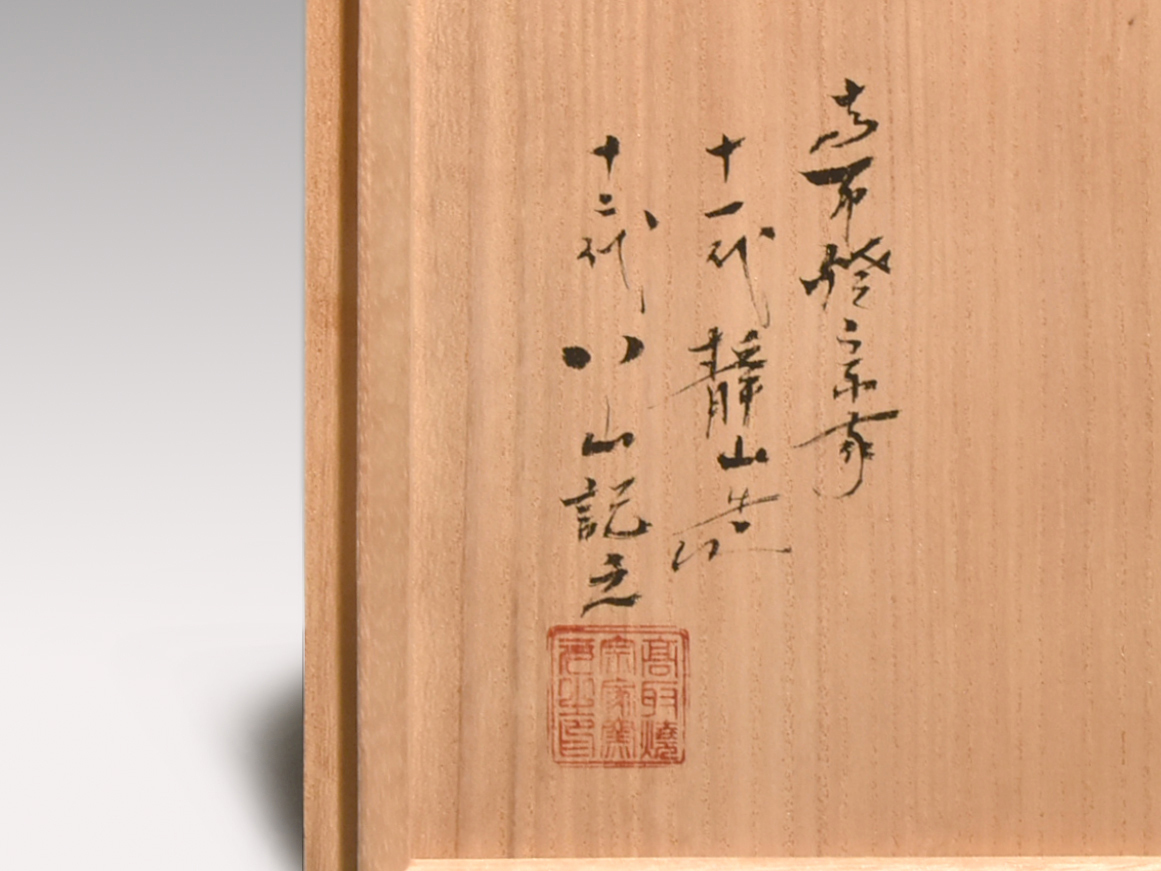 高取焼宗家
十一代静山造
十二代八山記之
髙取燒
宗家窯